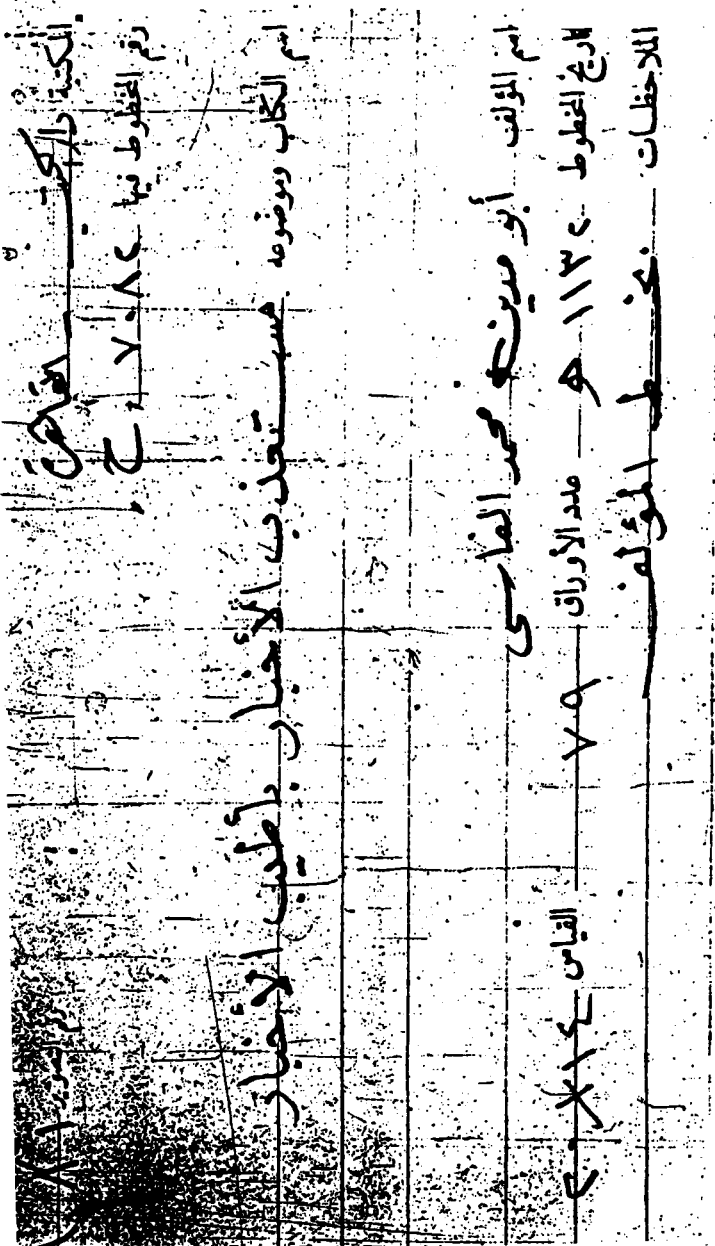 المكتبة دار الكتب القاهرة
رقم المخطوط فيها ٧٠٨٢ ح
اسم الكتاب وموضوعه مستعذب الأخبار بأطيب الأخبار
اسم المؤلف أبو مدين بن محمد الفاسى
تاريخ المخطوط ١١٣٢ هـ عدد الأوراق ٧٩ القياس ٢٠×١٤
الملاحظات بخط المؤلف